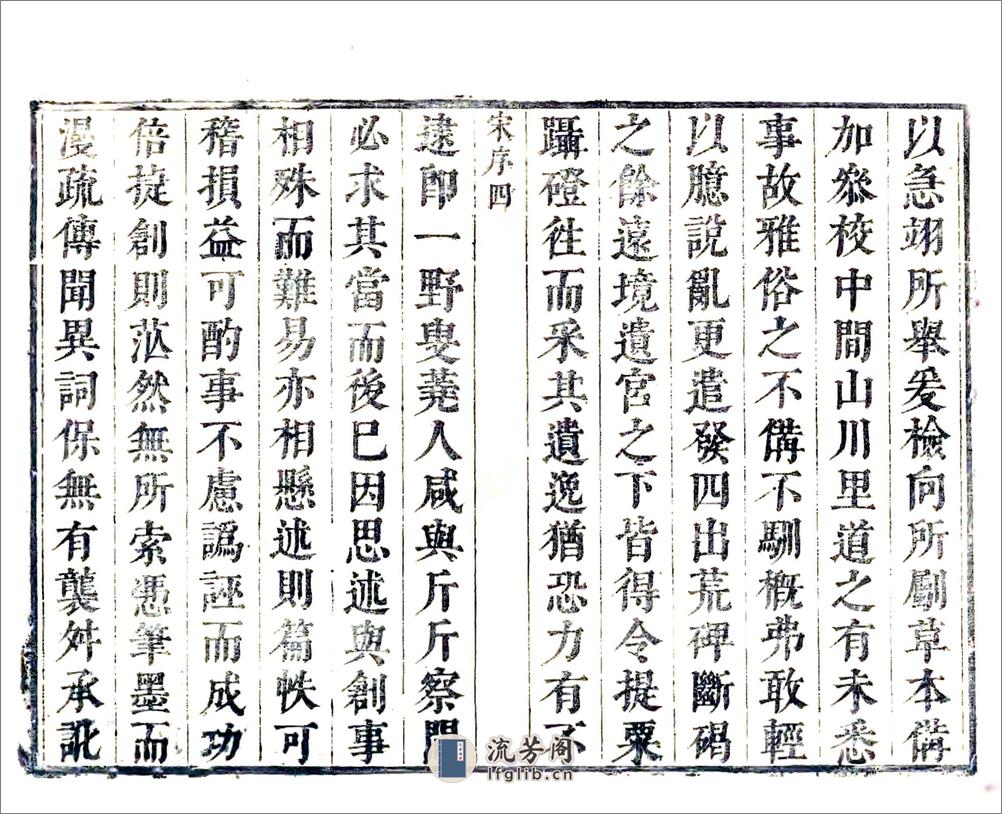 以急翊所舉爰檢向所劚草本備
加叅校中間山川里道之有未悉
事故雅俗之不備不馴槪弗敢輕
以臆說亂更遣發四出荒碑斷碣
之餘遠境遺宮之下皆得令提槖
躡磴徃而采其遺逸猶恐力有不
宋序四
逮卽一野叟蕘人咸與斤斤察問
必求其當而後已因思述與創事
相殊而難易亦相懸述則篇帙可
稽損益可酌事不慮譌誣而成功
倍㨗創則茫然無所索慿筆墨而
漫疏傳聞異詞保無有襲舛承訛
流芳阁
lfglib.cn